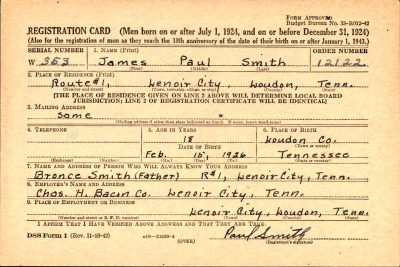 Form Approved
Budget Bureau No. 33-R012-42
REGISTRATION CARD (Men born on or after July 1, 1924, and on or before December 31, 1924)
(Also for the registration of men as they reach the 18th anniversary of the date of their birth on or after January 1, 1943.)
SERIAL NUMBER 1. NAME (Print) ORDER NUMBER
W 353 James Paul Smith 12122
(First) (Middle) (Last)
2. PLACE OF RESIDENCE (Print)
Route #1, Lenoir City, Loudon, Tenn.
(Number and street) (Town, township, village, or city) (County) (State)
[THE PLACE OF RESIDENCE GIVEN ON LINE 2 ABOVE WILL DETERMINE LOCAL BOARD
JURISDICTION; LINE 2 OF REGISTRATION CERTIFICATE WILL BE IDENTICAL]
3. MAILING ADDRESS
Same
(Mailing address if other than place indicated on line 2. If same, insert word same)
4. TELEPHONE 5. AGE IN YEARS 6. PLACE OF BIRTH
18 Loudon Co.
DATE OF BIRTH (Town or county)
Feb. 15, 1926 Tennessee
(Exchange) (Number) (Mo.) (Day) (Yr.) (State or country)
7. NAME AND ADDRESS OF PERSON WHO WILL ALWAYS KNOW YOUR ADDRESS
Bronce Smith (Father) R#1, Lenoir City, Tenn.
8. EMPLOYER'S NAME AND ADDRESS
Chas. H. Bacon Co. Lenoir City, Tenn.
9. PLACE OF EMPLOYMENT OR BUSINESS
Lenoir City, Loudon, Tenn.
(Number and street or R. F. D. number) (Town) (County) (State)
I AFFIRM THAT I HAVE VERIFIED ABOVE ANSWERS AND THAT THEY ARE TRUE.
DSS Form 1 (Rev. 11-16-42) (OVER) Paul Smith
(Registrant's signature)